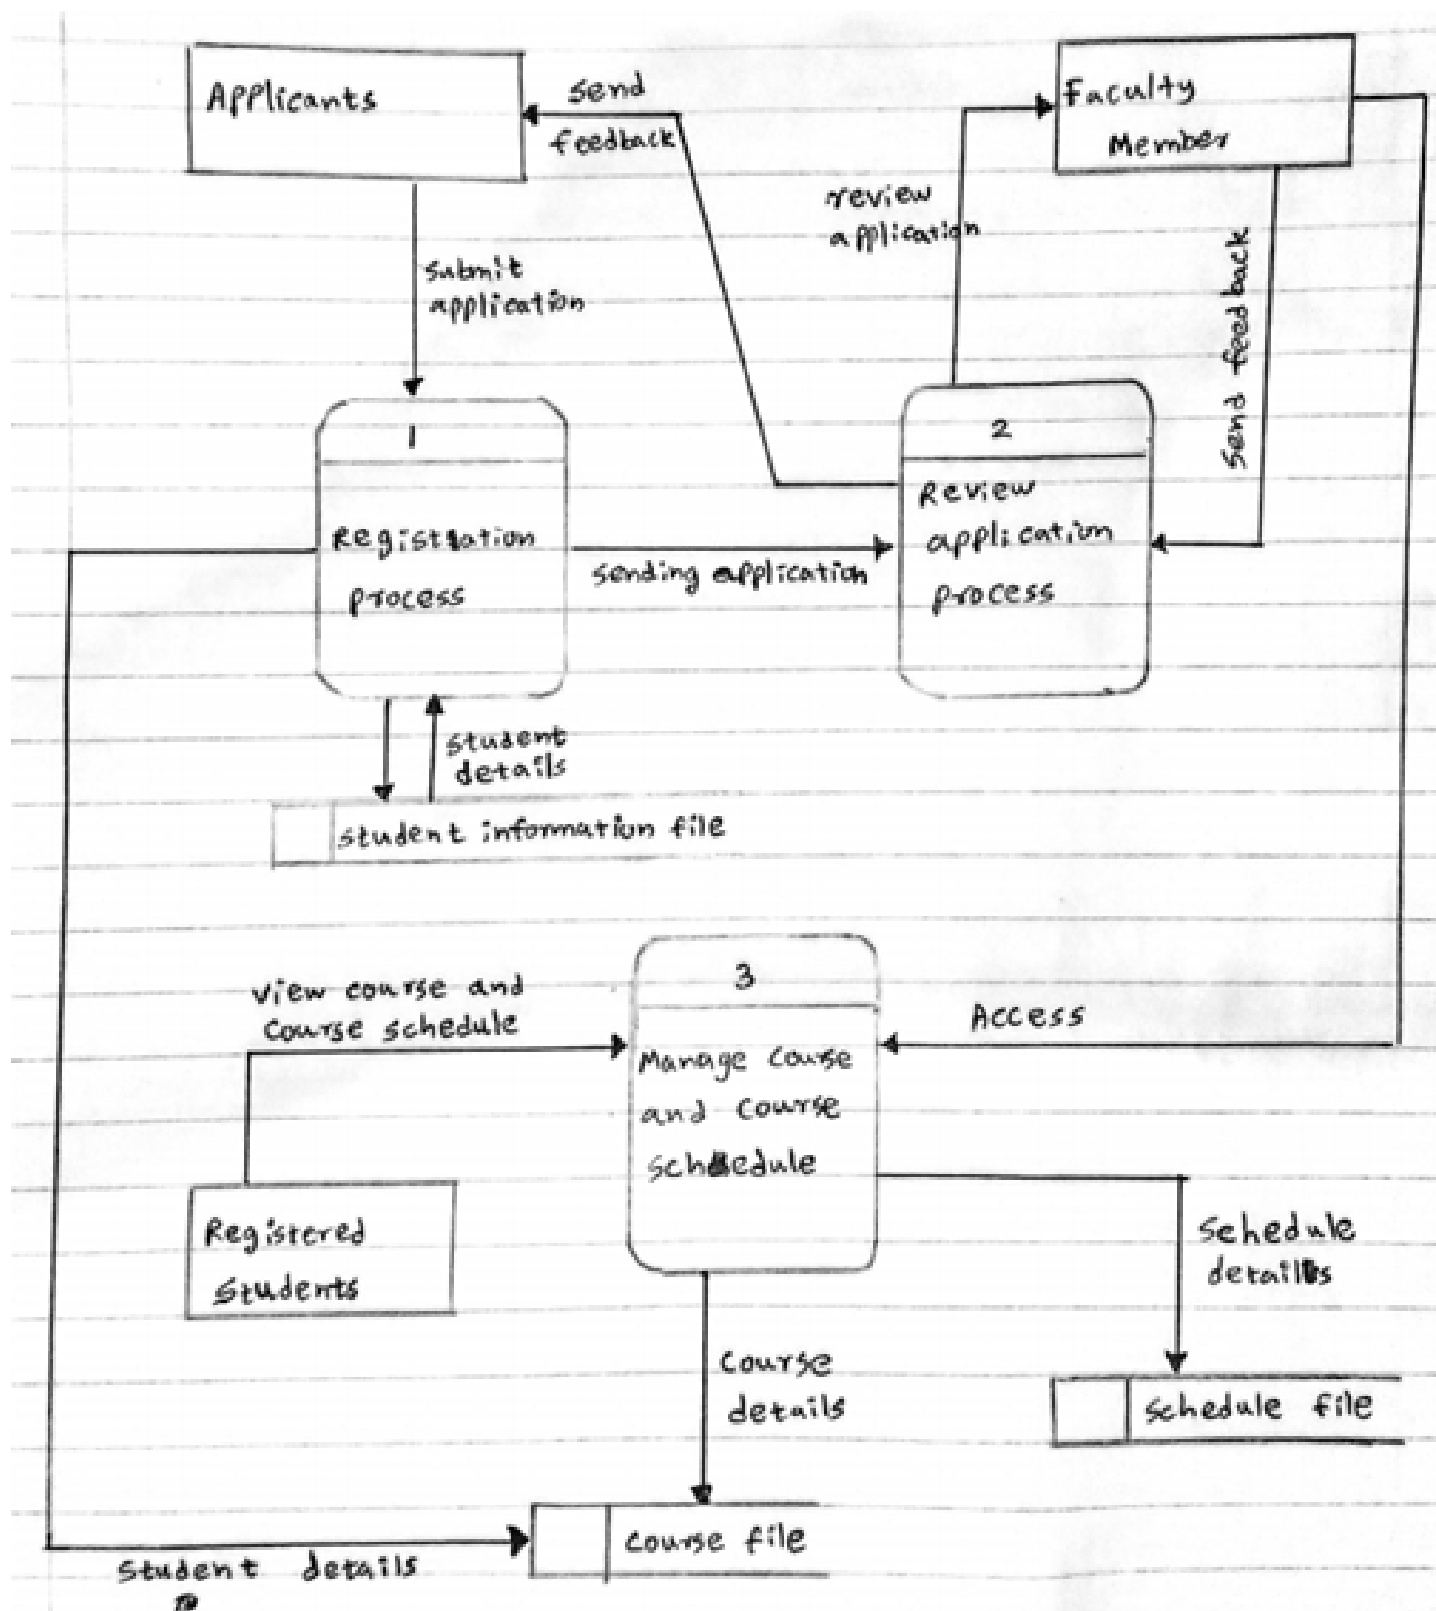 Applicants
send
feedback
Faculty
Member
review
application
submit
application
send feedback
1
Registration
process
sending application
2
Review
application
process
student
details
student information file
view course and
course schedule
3
Manage course
and course
schedule
Access
Registered
students
schedule
details
course
details
schedule file
course file
student details